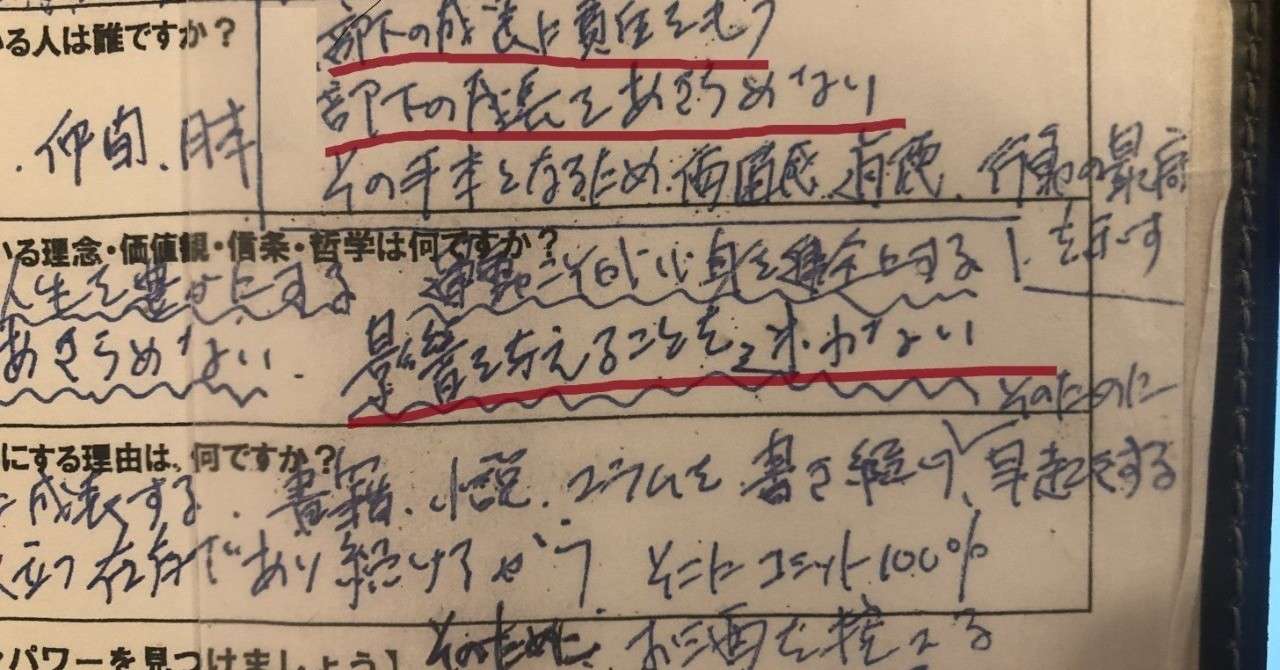 部下の成長に責任をもつ
る人は誰ですか？
部下の成長をあきらめない
仲間、
その手本となるため、価値感、行動の最高
を示す
いる理念・価値観・信条・哲学は何ですか？
人生を豊かにする 運動こそ心身を健全にする
あきらめない 影響を与えることをてらわない
そのために
にする理由は、何ですか？
成長する、書籍、小説、コラムを書き続け、早起きをする
立つ存在であり続ける そこにコミット100%
パワーを見つけましょう】 そのために、お酒を控える